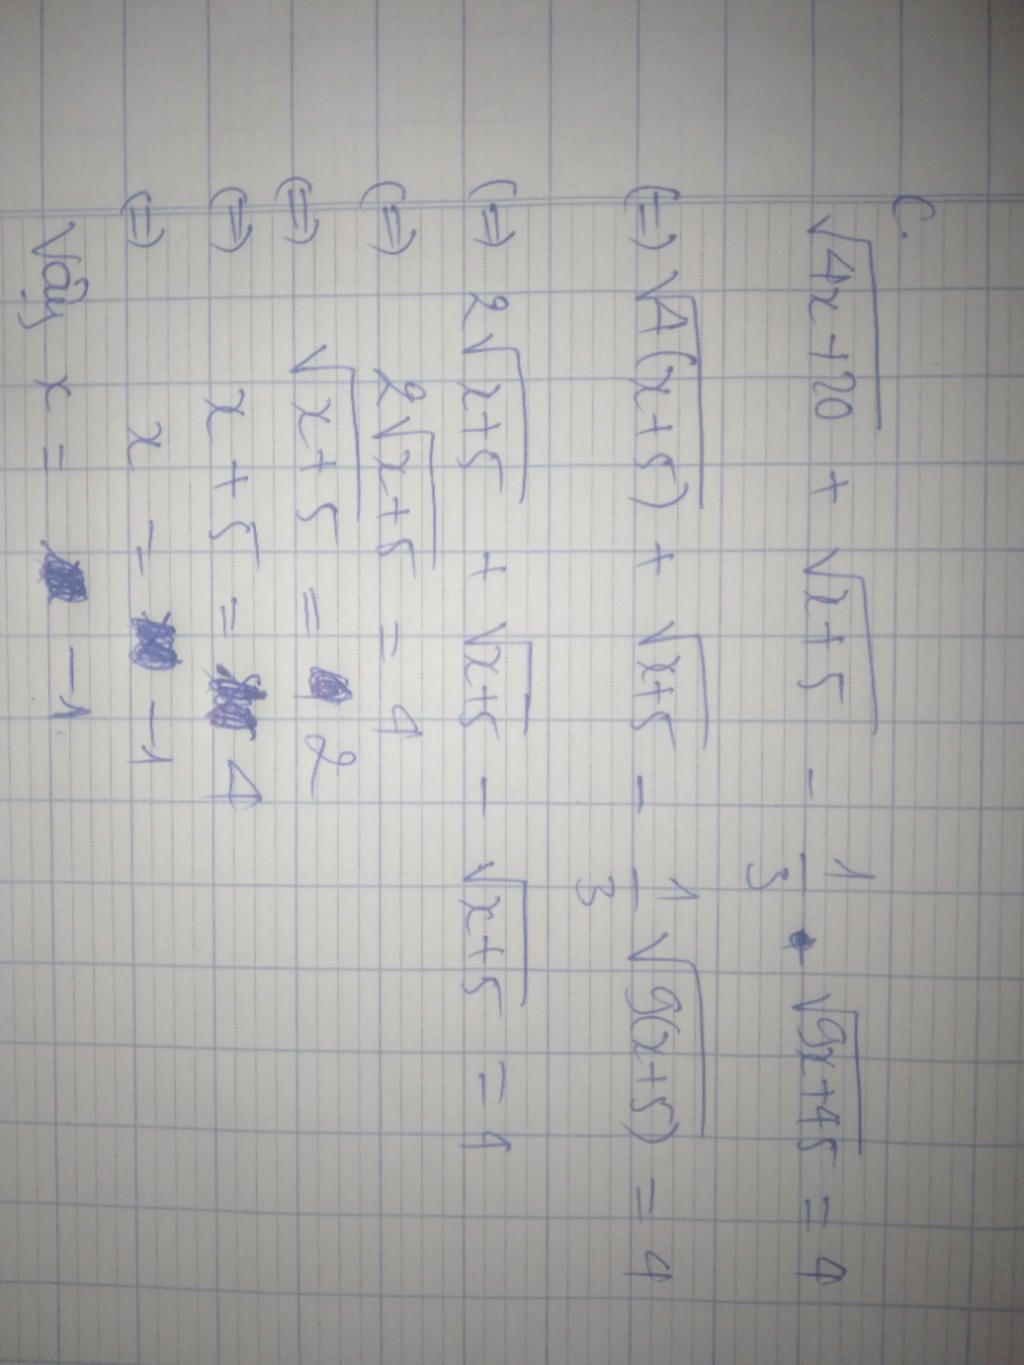 C.
√(4x+20) + √(x+5) - 1/3 · √(9x+45) = 4
(=) √(4(x+5)) + √(x+5) - 1/3 √(9(x+5)) = 4
(=) 2√(x+5) + √(x+5) - √(x+5) = 4
(=) 2√(x+5) = 4
(=) √(x+5) = 2
(=) x + 5 = 4
(=) x = -1
Vậy x = -1.